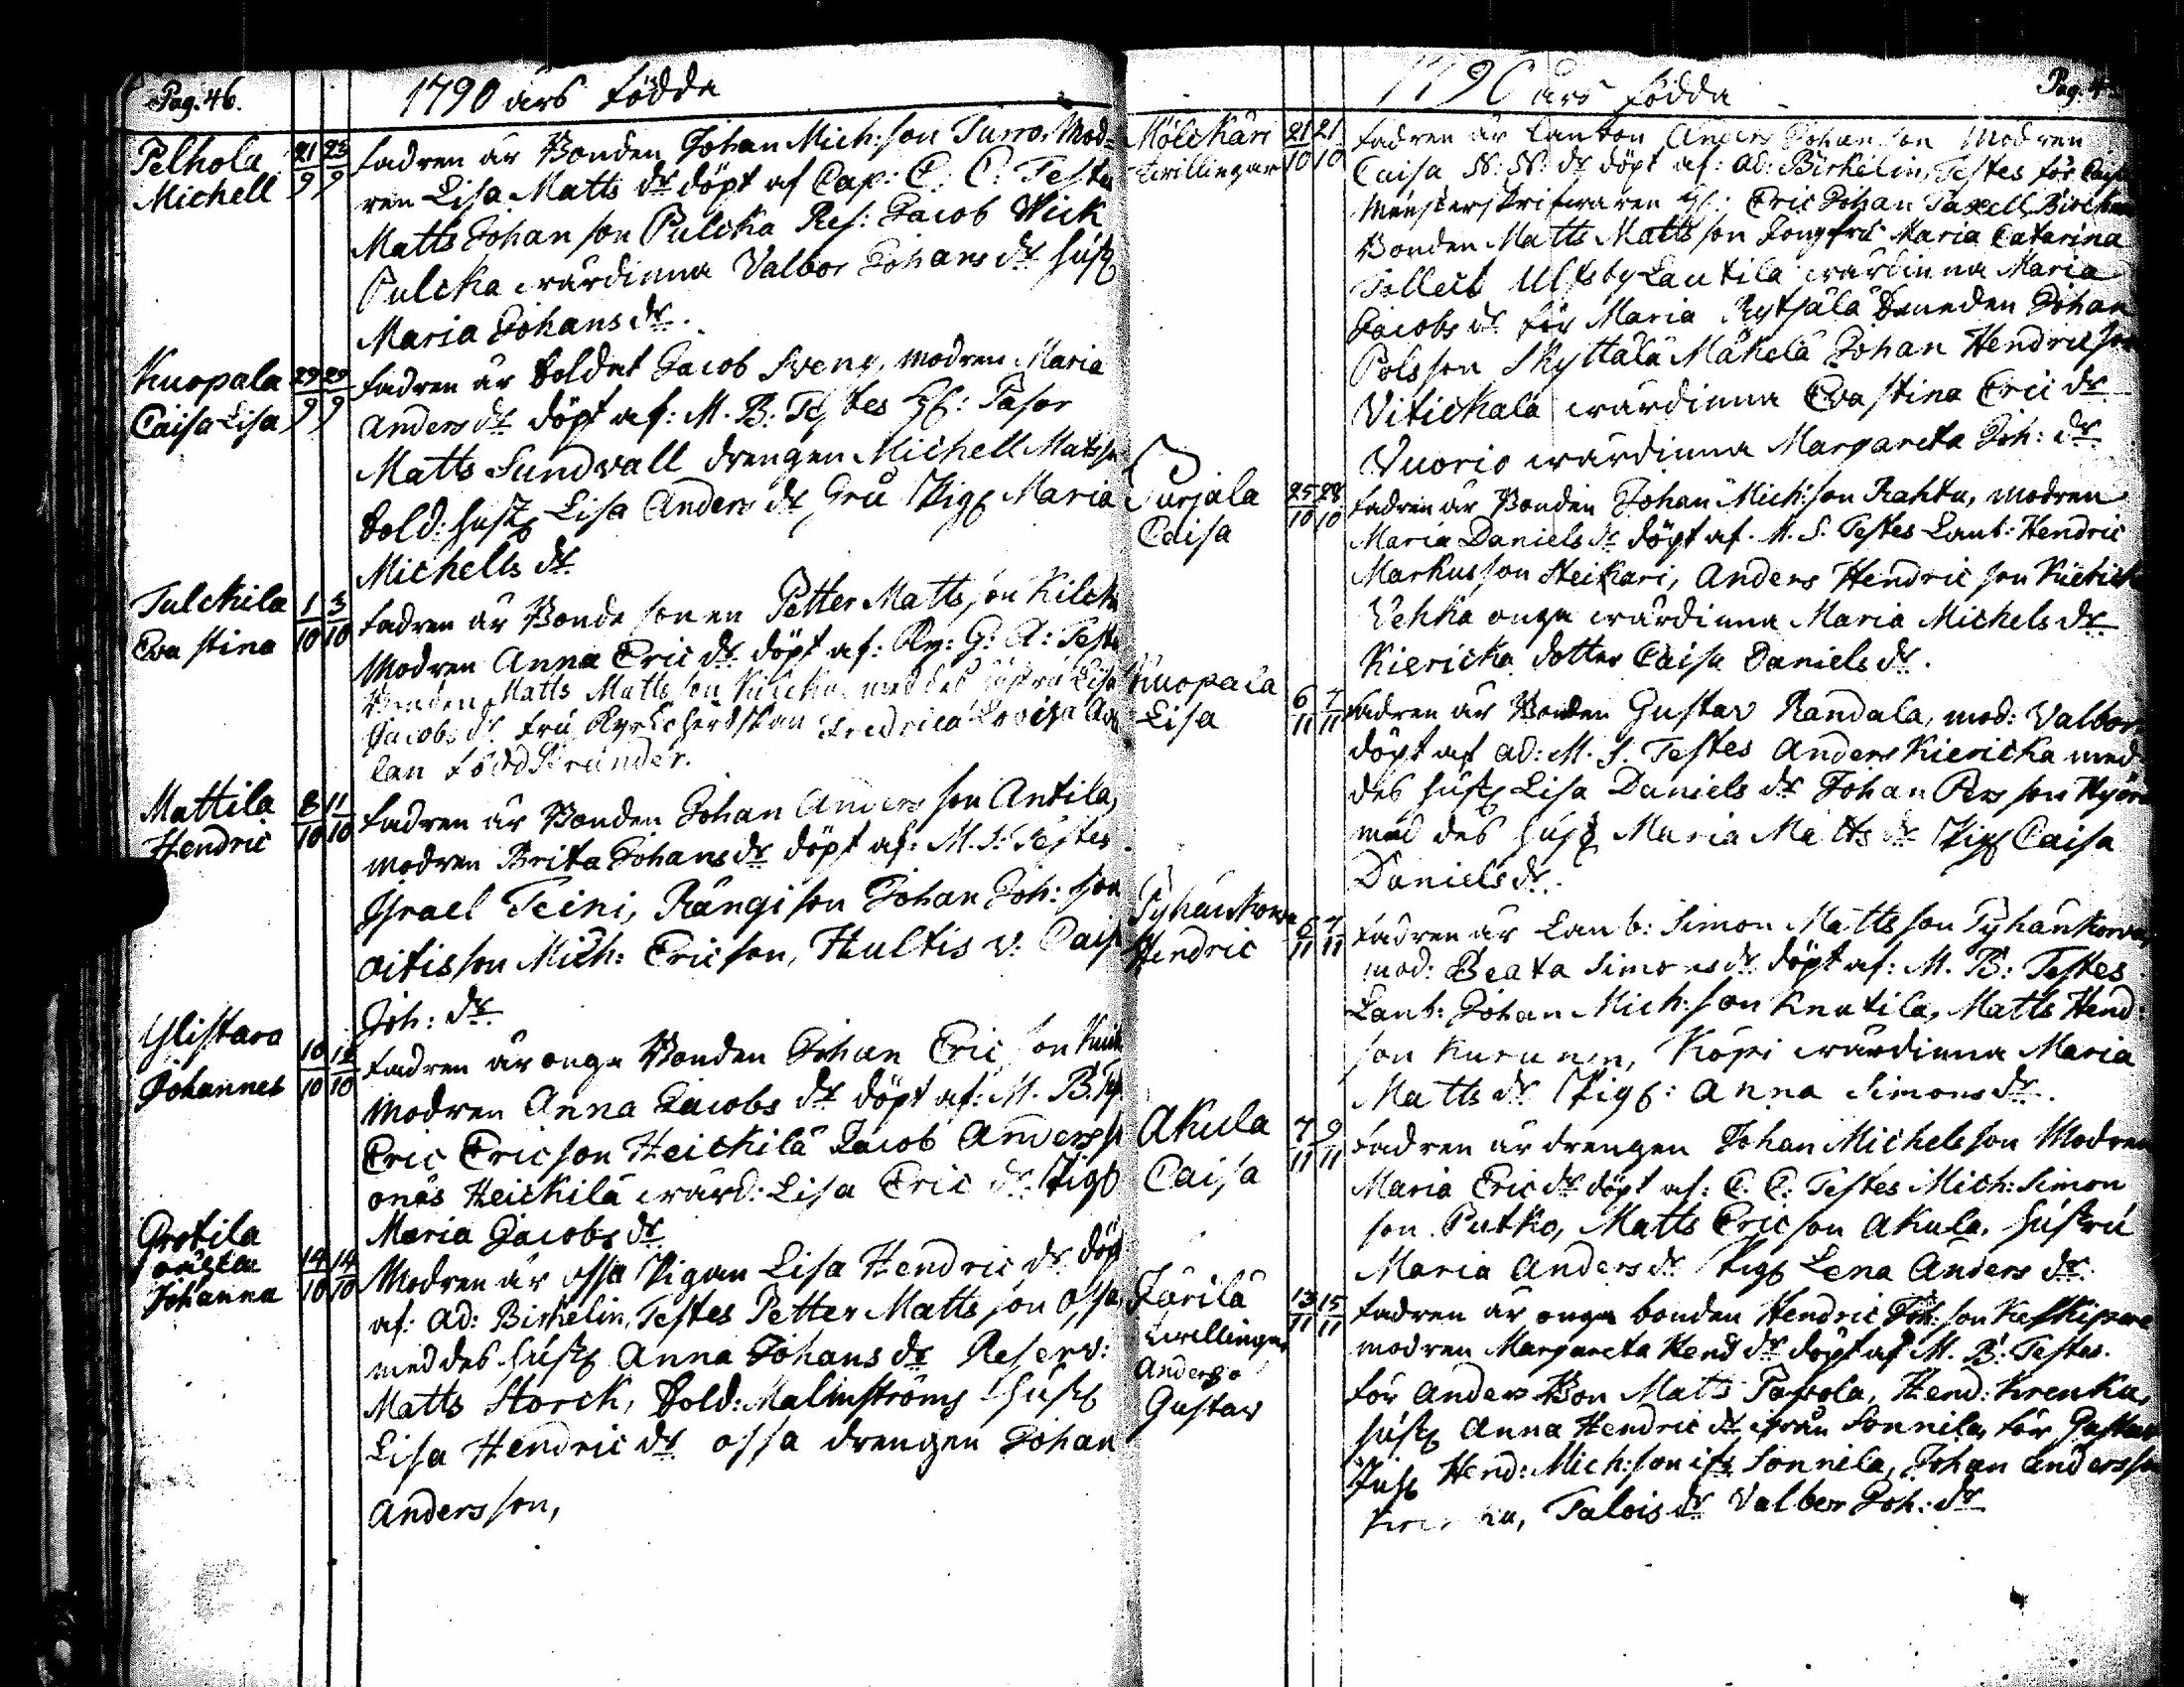 Pag. 46.
1790 års födde
Pelhola 21/9 23/9 fadren är Bonden Johan Mich:son Turro, Mod=
Michell ren Lisa Matts dr döpt af Cap: C. C: Testes
Matts Johan son Pulcka Res: Jacob Wick
Pulcka wärdinna Valbor Johans dr hust
Maria Johans dr.
Kuopala 29/9 29/9 fadren är Soldat Jacob Sveng, modren Maria
Caisa Lisa Anders dr döpt af: M. B: Testes
Matts Sundvall drengen Michell Mats son
Sold: hust Lisa Anders dr Pig Maria
Michells dr.
Tulckila 1/10 3/10 fadren är Bonde sonen Petter Matts son
Eva Stina Modren Anna Eric dr döpt af: Ky: G: A: Testes
Bonden Matts Matts son med des hustru Lisa
Jacobs dr fru Fredrica Lovisa
lan född
Mattila 8/10 11/10 fadren är Bonden Johan Anders son Antila,
Hendric modren Brita Johans dr döpt af: M. S: Testes
Israel Teini, Rångi son Johan Joh: son
oitis son Mich: Ericson, Hultis v: Caisa
Joh: dr.
Ylistaro 10/10 fadren är unga Bonden Johan Eric son
Johannes Modren Anna Jacobs dr döpt af: M. B. Test
Eric Ericson Heickilä Jacob Anders
Heickilä wärd: Lisa Eric dr Pig
Maria Jacobs dr.
Protila
oägta 14/10 14/10 Modren är ossa Pigan Lisa Hendric dr döpt
Johanna af: Ad: Birkelin, Testes Petter Matts son ossa,
med des hust Anna Johans dr Reserv:
Matts Storck, Sold: Malmströms hust
Lisa Hendric dr ossa drengen Johan
Andersson,
1790 års födda
Pag. 4
Mölckäri 21/10 21/10 fadren är Lanbon Anders Johan son Modren
Twillingar Caisa N: N: dr döpt af: Ad: Birkelin, Testes för Caisa
Mönsterskrifwaren H: Eric Johan Taxell,
Bonden Matts Matts son Jongfru Maria Catarina
Ulfsby Lautila wärdinna Maria
Jacobs dr för Maria Rytsälä bonden Johan
Pols son Skyttälä Mäkelä Johan Hendricson
Vitickala wärdinna Eva Stina Eric dr
Vuorio wärdinna Margareta Joh: dr
Surjala 25/10 28/10 fadren är Bonden Johan Mich:son Rahtu, modren
Caisa Maria Daniels dr döpt af. M. S. Testes Lanb: Hendric
Markus son Heikari, Anders Hendric son
Vehka unga wärdinna Maria Michels dr
Kiericka dotter Caisa Daniels dr.
Kuopala 6/11 7/11 fadren är Bonden Gustav Randala, mod: Valbor
Lisa döpt af ad: M. S. Testes Anders Kiericka med
des hust Lisa Daniels dr Johan Pers son
med des hust Maria Matts dr Pig Caisa
Daniels dr.
Pyhänkorva 6/11 7/11 fadren är Lanb: Simon Matts son Pyhänkorva,
Hendric mod: Beata Simons dr döpt af: M. B: Testes
Lanb: Johan Mich: son Knutila, Matts Hend:
son Kurunen, Köpi wärdinna Maria
Matts dr Pig: Anna Simons dr.
Akula 7/11 9/11 fadren är drengen Johan Michelsson Modren
Caisa Maria Eric dr döpt af: C. C: Testes Mich: Simon
son Putko, Matts Eric son Akula, hustru
Maria Anders dr Pig Lena Anders dr.
Järilä 13/11 15/11 fadren är unga bonden Hendric Joh: son
Twillingar modren Margareta Hend dr döpt af M. B. Testes.
Anders o för Anders Bon Matts Pavola, Hend: Krenku,
Gustav hust Anna Hendric dr ifrån Sonnila, för Gustav
Hend: Mich: son ifr Sonnila, Johan Andersson
Talois dr Valbor Joh: dr